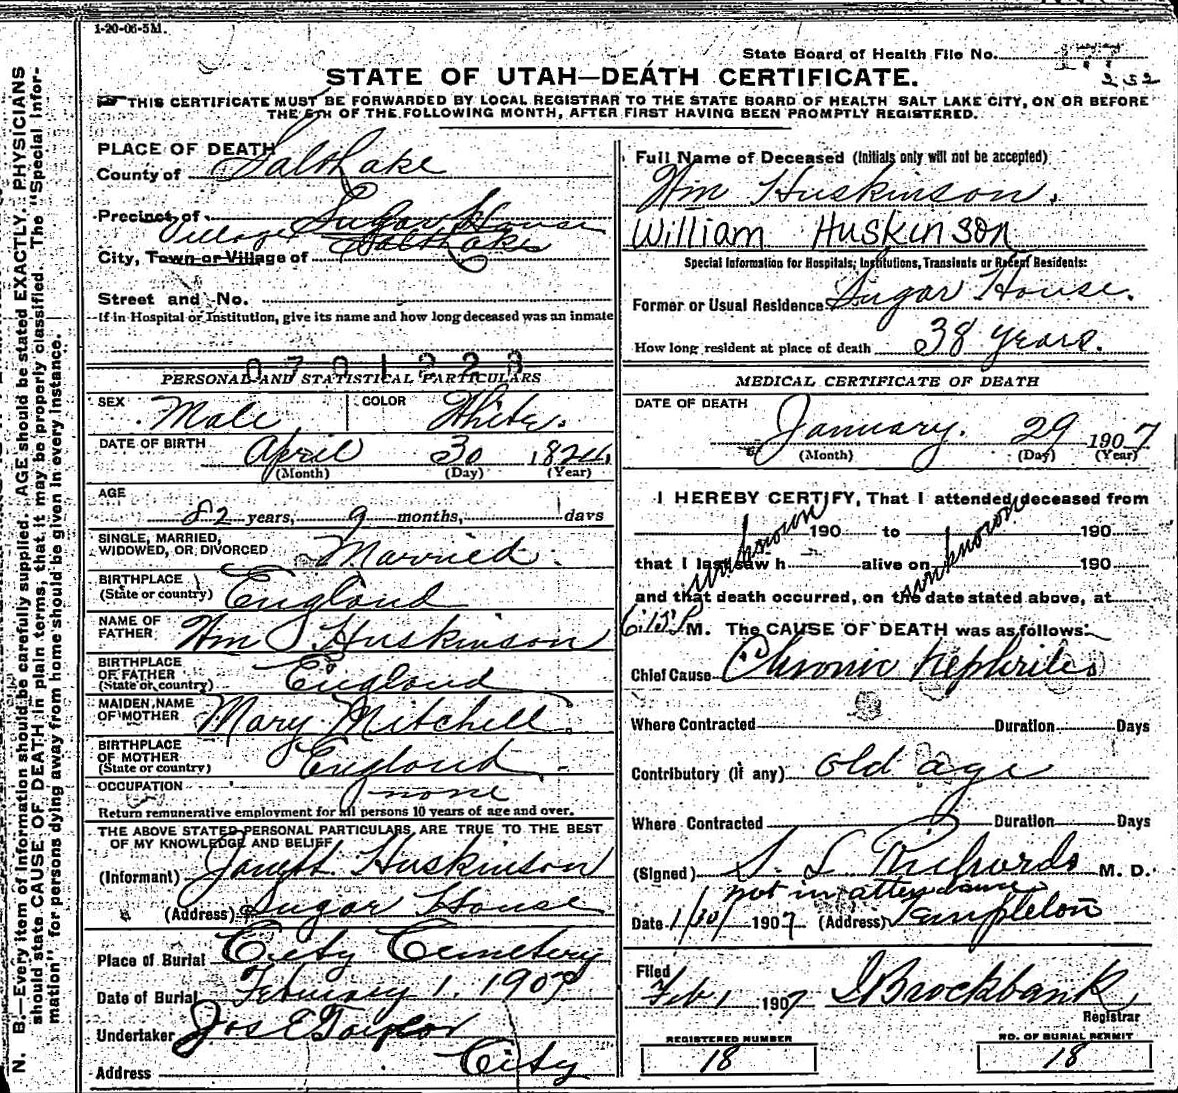 1-20-06-5M.
State Board of Health File No. 177
232
STATE OF UTAH—DEATH CERTIFICATE.
THIS CERTIFICATE MUST BE FORWARDED BY LOCAL REGISTRAR TO THE STATE BOARD OF HEALTH SALT LAKE CITY, ON OR BEFORE
THE 5TH OF THE FOLLOWING MONTH, AFTER FIRST HAVING BEEN PROMPTLY REGISTERED.
N. B.—Every item of information should be carefully supplied. AGE should be stated EXACTLY. PHYSICIANS
should state CAUSE OF DEATH in plain terms, that it may be properly classified. The "Special Infor-
mation" for persons dying away from home should be given in every instance.
PLACE OF DEATH
County of Salt Lake
Precinct of Sugar House
Village
City, Town or Village of Salt Lake
Street and No.
If in Hospital or Institution, give its name and how long deceased was an inmate
0701223
PERSONAL AND STATISTICAL PARTICULARS
SEX Male COLOR White.
DATE OF BIRTH April 30 1824
(Month) (Day) (Year)
AGE
82 years, 9 months, days
SINGLE, MARRIED,
WIDOWED, OR DIVORCED Married.
BIRTHPLACE
(State or country) England
NAME OF
FATHER Wm Huskinson
BIRTHPLACE
OF FATHER
(State or country) England
MAIDEN NAME
OF MOTHER Mary Mitchell.
BIRTHPLACE
OF MOTHER
(State or country) England.
OCCUPATION none
Return remunerative employment for all persons 10 years of age and over.
THE ABOVE STATED PERSONAL PARTICULARS ARE TRUE TO THE BEST
OF MY KNOWLEDGE AND BELIEF
(Informant) Huskinson
(Address) Sugar House
Place of Burial City Cemetery
Date of Burial February 1. 1907
Undertaker Jos E Taylor
Address City
Full Name of Deceased (Initials only will not be accepted)
Wm Huskinson.
William Huskinson
Special Information for Hospitals, Institutions, Transients or Recent Residents:
Former or Usual Residence Sugar House.
How long resident at place of death 38 years.
MEDICAL CERTIFICATE OF DEATH
DATE OF DEATH
January. 29 1907
(Month) (Day) (Year)
I HEREBY CERTIFY, That I attended deceased from
unknown 190 to unknown 190
that I last saw h alive on 190
and that death occurred, on the date stated above, at
6:15 P M. The CAUSE OF DEATH was as follows:
Chief Cause Chronic Nephritis
Where Contracted Duration Days
Contributory (if any) old age
Where Contracted Duration Days
(Signed) S. L. Richards M. D.
not in attendance
Date 1/30/ 1907 (Address) Templeton
Filed
Feb 1 1907 Brockbank
Registrar
REGISTERED NUMBER
18
NO. OF BURIAL PERMIT
18